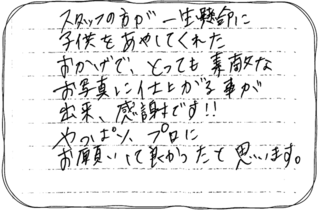 スタッフの方が一生懸命に
子供をあやしてくれた
おかげで、とっても素敵な
お写真に仕上がる事が
出来、感謝です!!
やっぱり、プロに
お願いして良かったと思います。